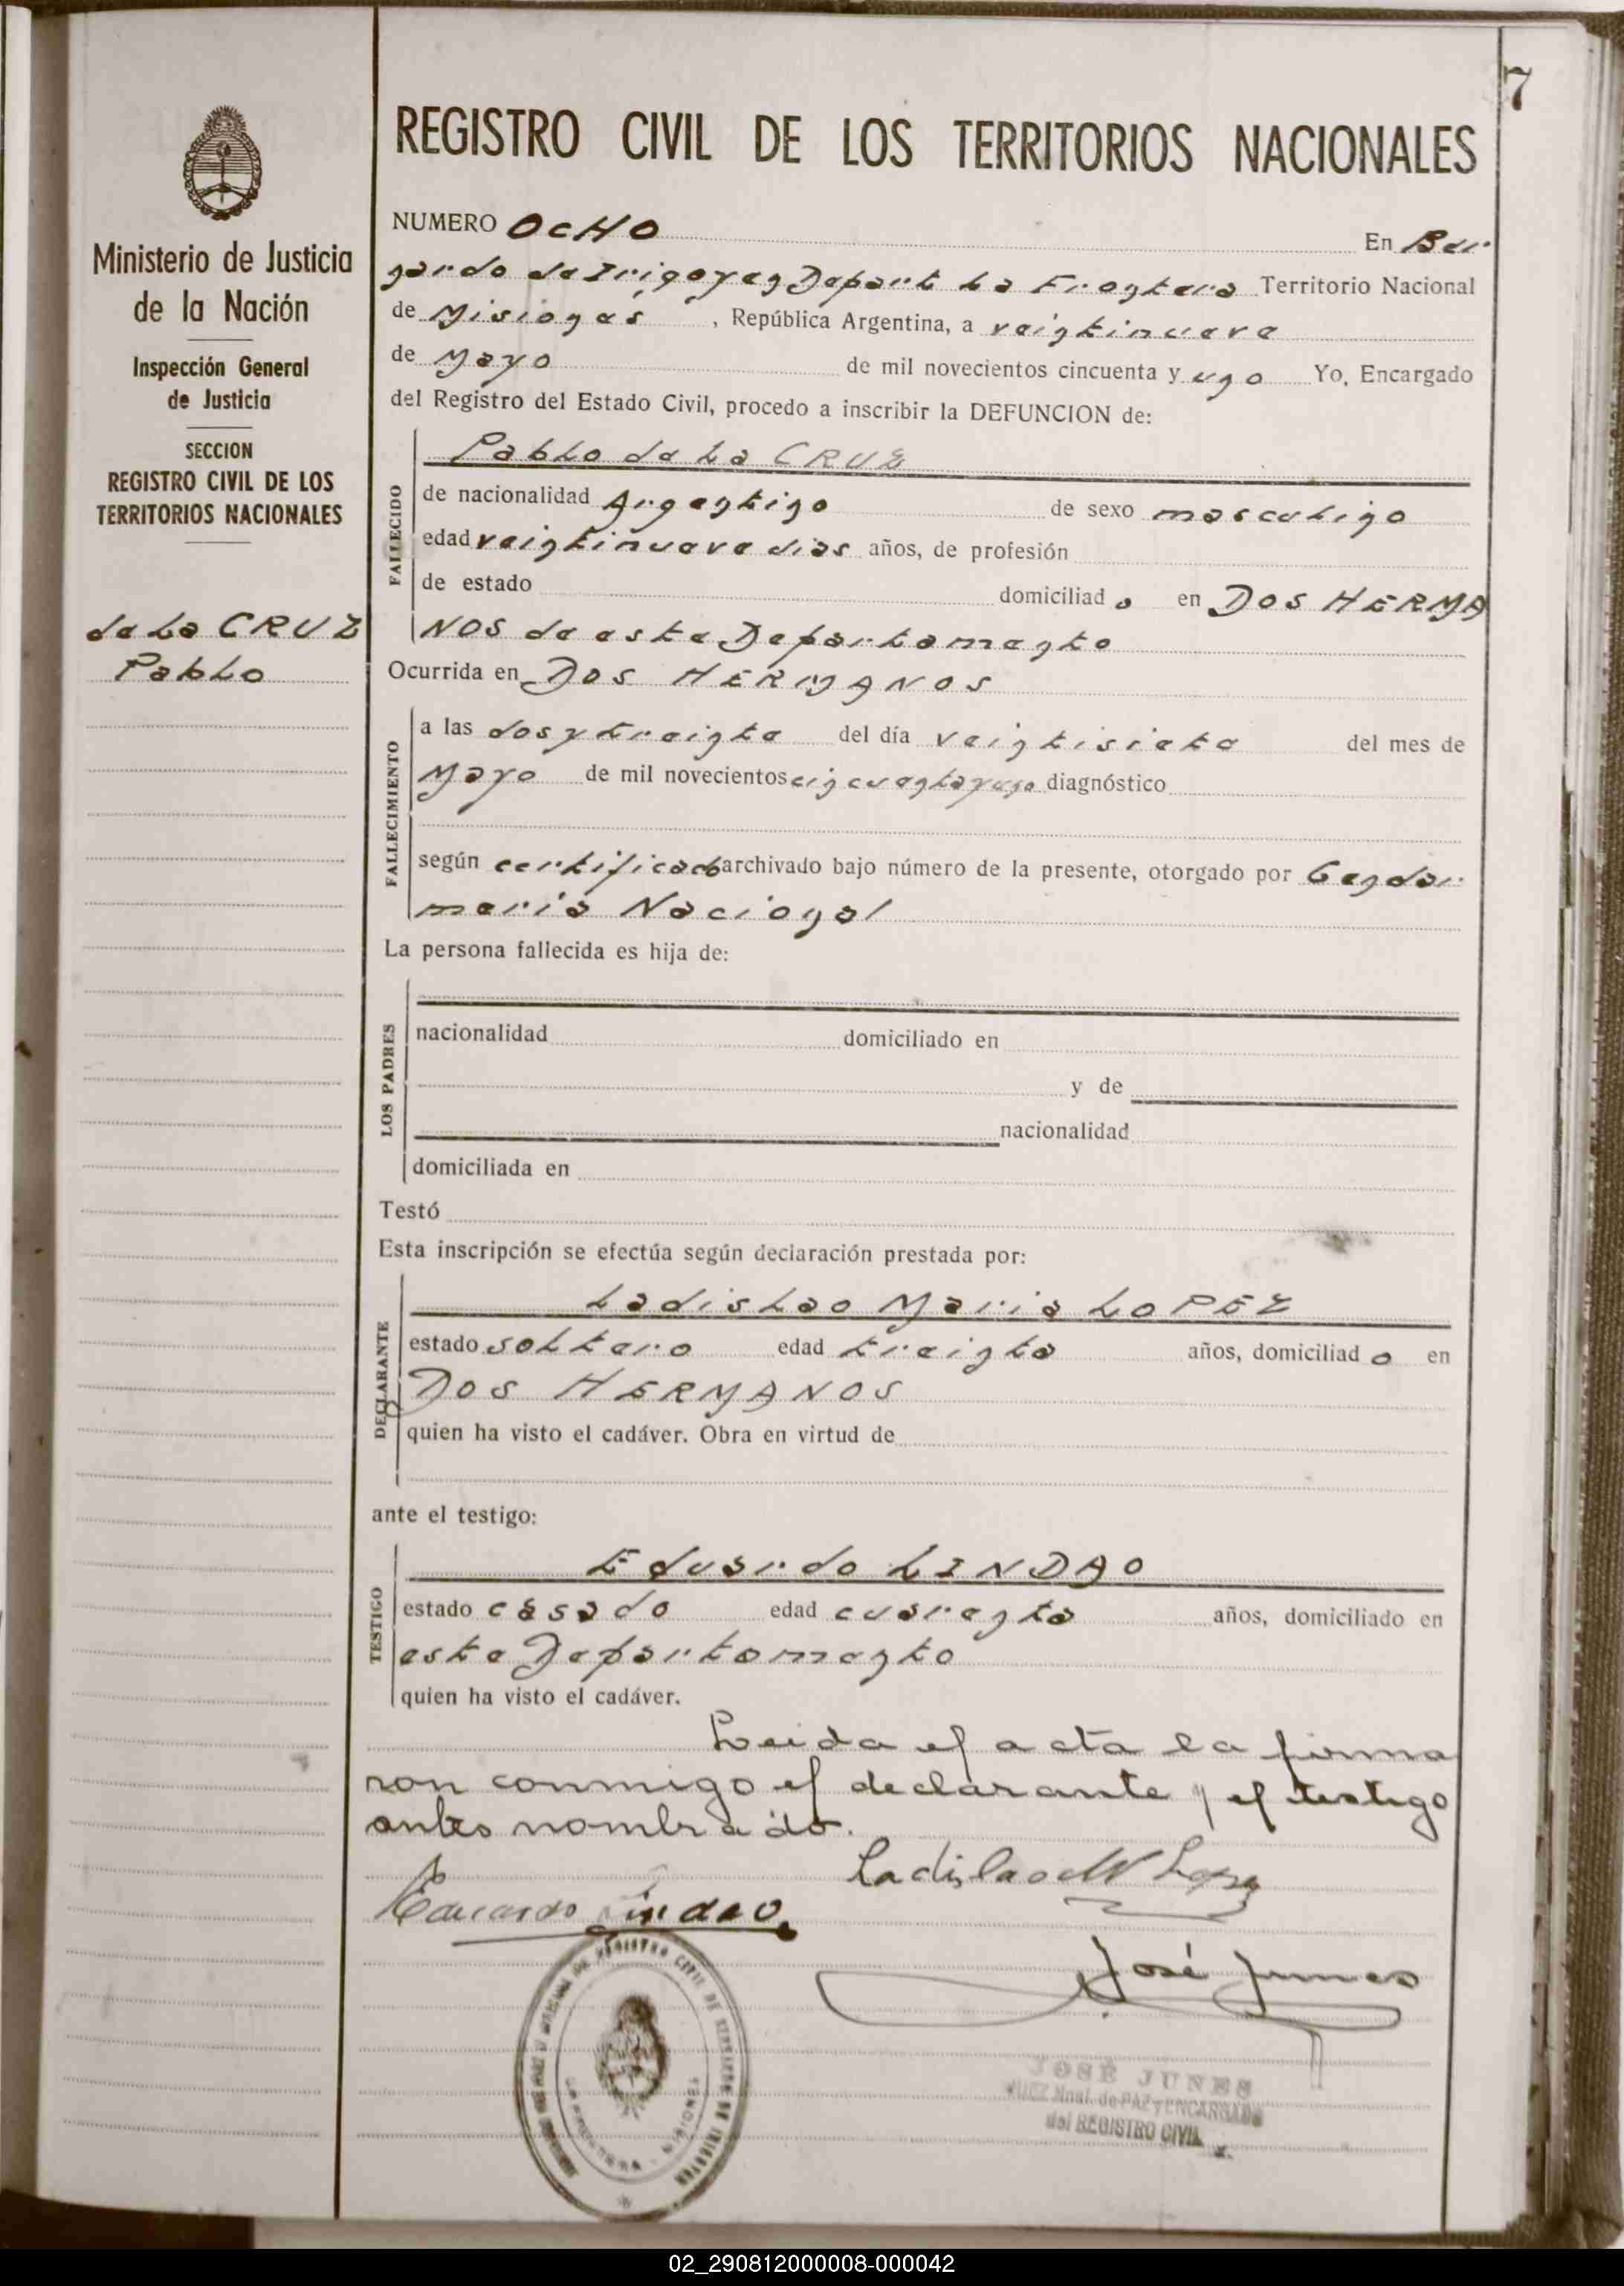 7
REGISTRO CIVIL DE LOS TERRITORIOS NACIONALES
Ministerio de Justicia
de la Nación
Inspección General
de Justicia
SECCION
REGISTRO CIVIL DE LOS
TERRITORIOS NACIONALES
de La CRUZ
Pablo
NUMERO OCHO En Ber
nardo de Irigoyen Depart La Frontera Territorio Nacional
de Misiones, República Argentina, a veintinueve
de Mayo de mil novecientos cincuenta y uno Yo, Encargado
del Registro del Estado Civil, procedo a inscribir la DEFUNCION de:
Pablo de La CRUZ
FALLECIDO
de nacionalidad Argentino de sexo masculino
edad veintinueve dias años, de profesión
de estado domiciliado en DOS HERMA
NOS de este Departamento
Ocurrida en DOS HERMANOS
FALLECIMIENTO
a las dos y treinta del día veintisiete del mes de
Mayo de mil novecientos cincuenta y uno diagnóstico
según certificado archivado bajo número de la presente, otorgado por Gendar
meria Nacional
La persona fallecida es hija de:
LOS PADRES
nacionalidad domiciliado en
y de
nacionalidad
domiciliada en
Testó
Esta inscripción se efectúa según declaración prestada por:
Ladislao Maria LOPEZ
DECLARANTE
estado soltero edad treinta años, domiciliado en
DOS HERMANOS
quien ha visto el cadáver. Obra en virtud de
ante el testigo:
Eduardo LINDAO
TESTIGO
estado casado edad cuarenta años, domiciliado en
este Departamento
quien ha visto el cadáver.
Leida el acta la firma
ron conmigo el declarante y el testigo
antes nombrado.
Ladislao M Lopez
Eduardo Lindao
José Junes
JOSÉ JUNES
JUEZ Nnal. de PAZ y ENCARGADO
del REGISTRO CIVIL
LA FRONTERA - MISIONES
02_290812000008-000042